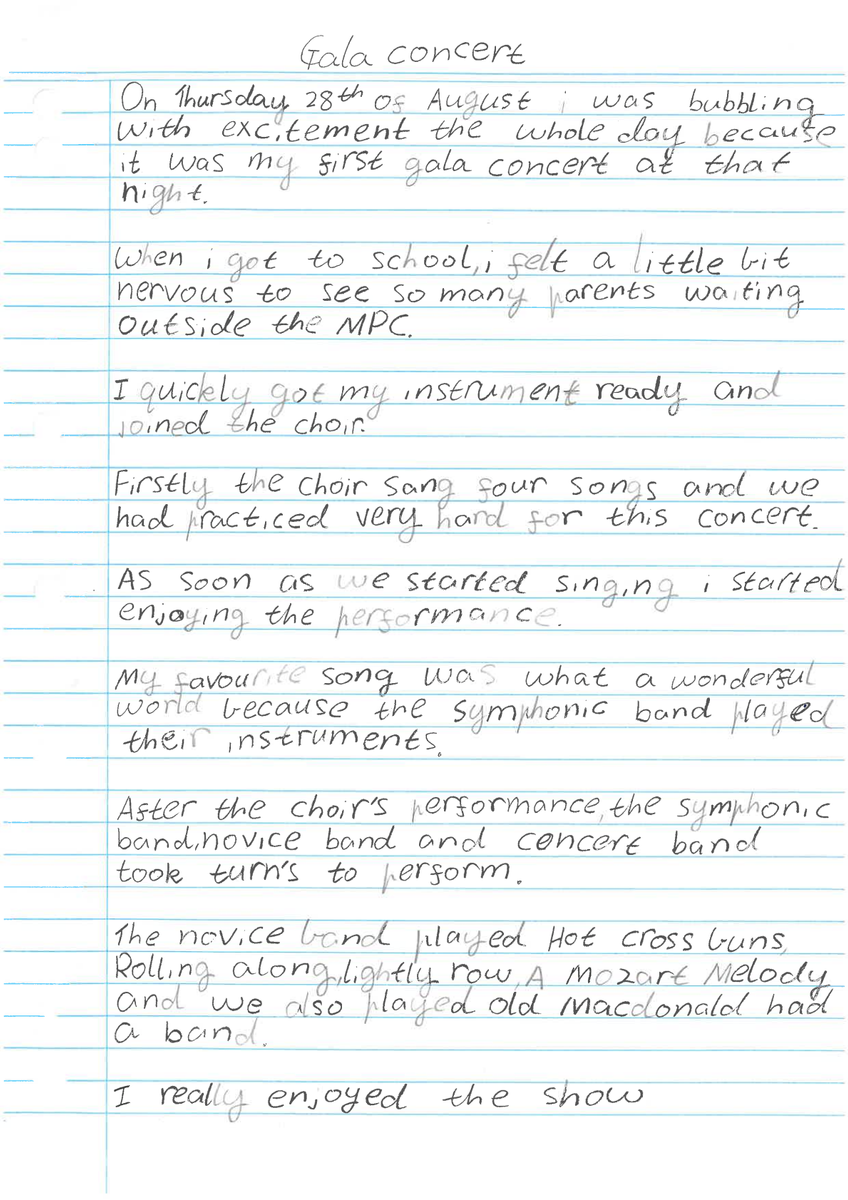 Gala concert
On Thursday 28th of August i was bubbling
with excitement the whole day because
it was my first gala concert at that
night.
When i got to school, i felt a little bit
nervous to see so many parents waiting
outside the MPC.
I quickly got my instrument ready and
joined the choir.
Firstly the choir sang four songs and we
had practiced very hard for this concert.
As soon as we started singing i started
enjoying the performance.
My favourite song was what a wonderful
world because the symphonic band played
their instruments.
After the choir's performance, the symphonic
band, novice band and concert band
took turn's to perform.
The novice band played Hot cross buns,
Rolling along, lightly row, A Mozart Melody
and we also played old Macdonald had
a band.
I really enjoyed the show